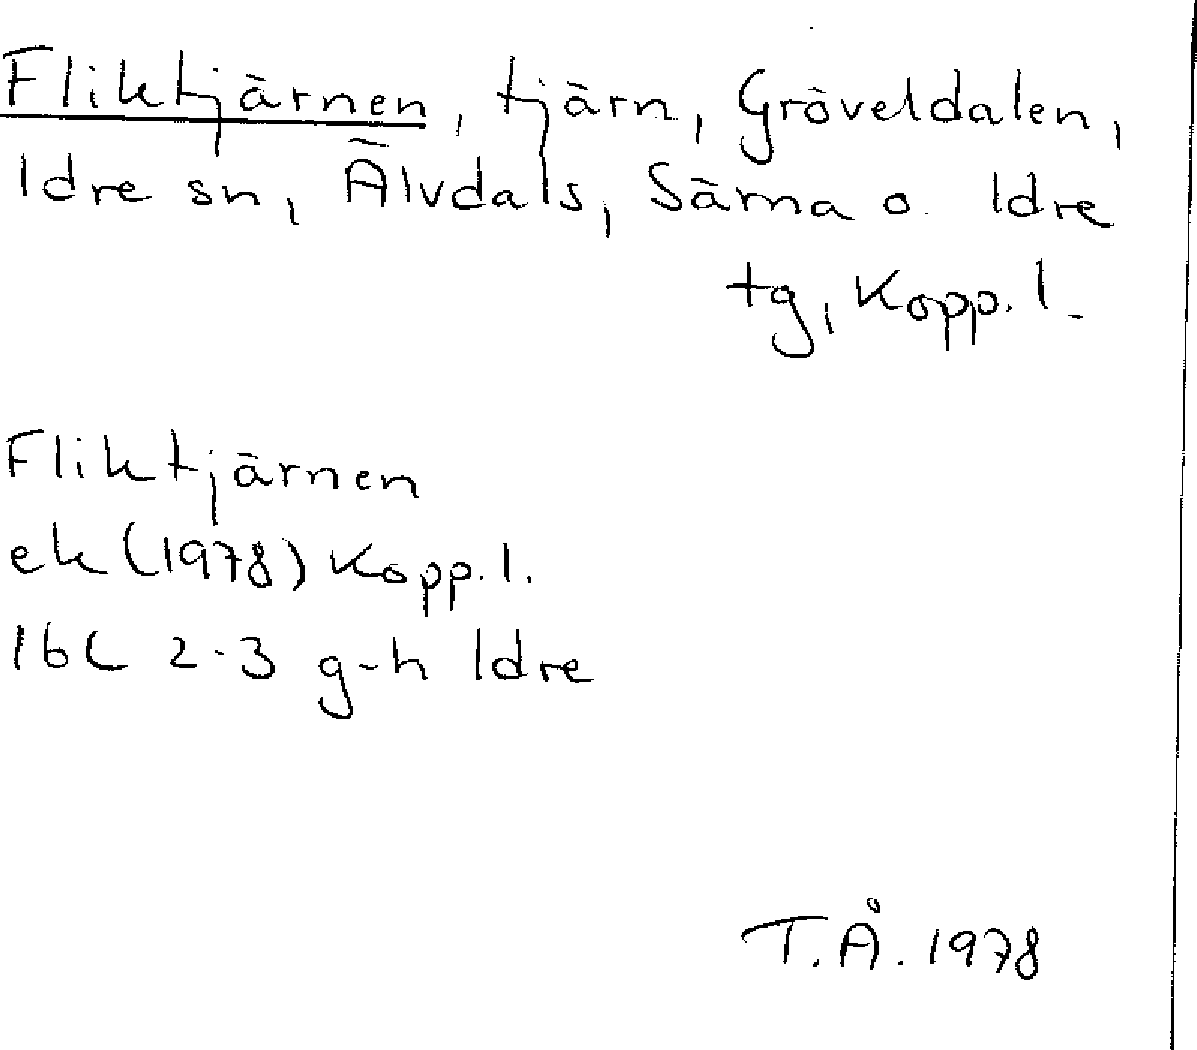 Fliktjärnen, tjärn, Gröveldalen,
Idre sn, Älvdals, Särna o. Idre
tg, Kopp. l.
Fliktjärnen
ek (1978) Kopp. l.
16C 2-3 g-h Idre
T.Å. 1978